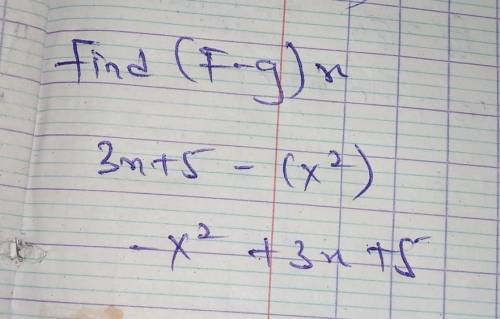 Find (F-g)x
3x+5 - (x²)
-x² + 3x +5